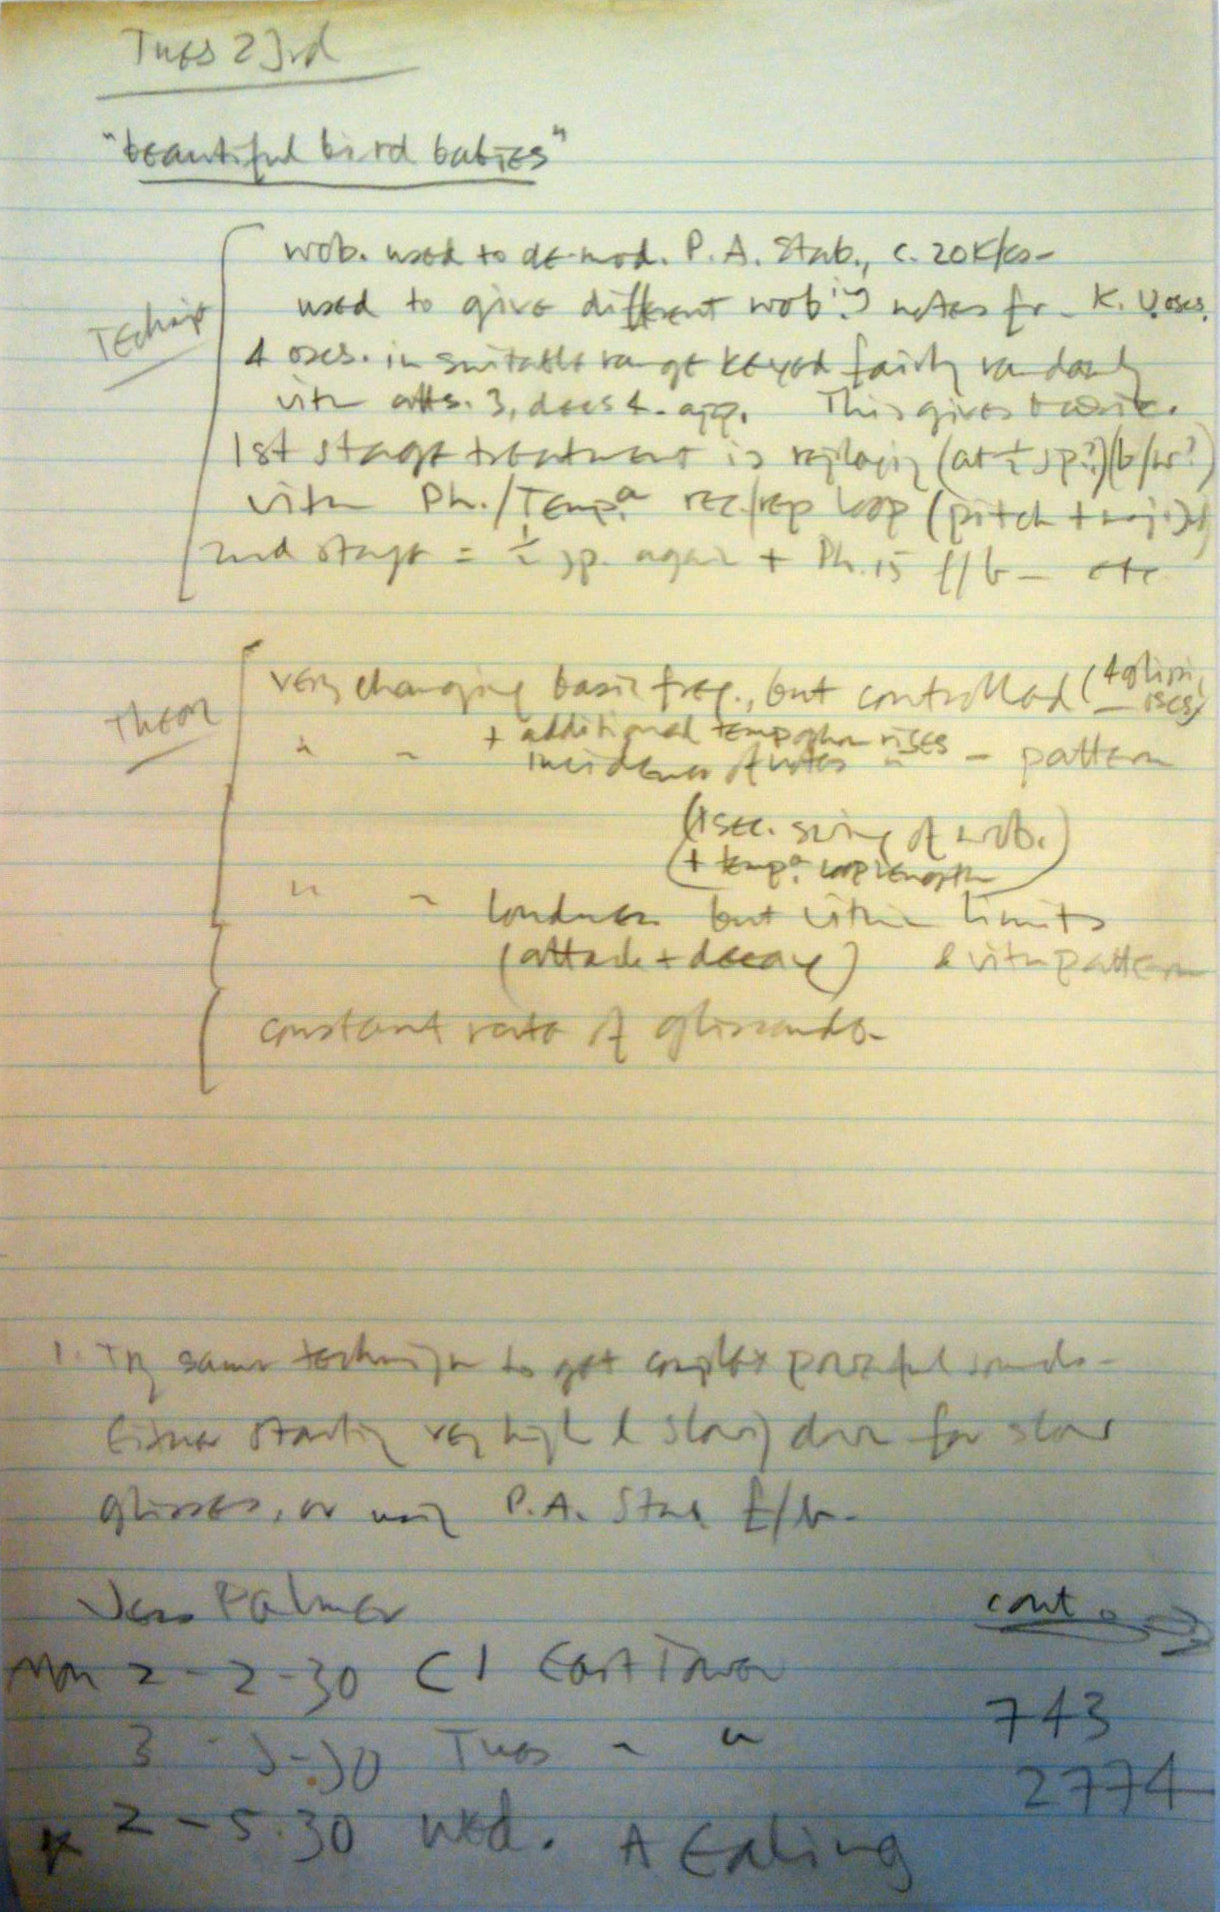 Tues 23rd
"beautiful bird babies"
wob. used to de-mod. P.A. Stab., c. 20K/cs -
used to give different wob'ing notes fr. K.U. oscs.
Technique
4 oscs. in suitable range keyed fairly randomly
with atts. 3, decs 4. app. This gives basic.
1st stage treatment is replaying (at ½ sp.?)
with Ph./Temp.a rec/rep loop (pitch +
2nd stage = ½ sp. again + Ph. 15 f/b - etc
very changing basic freq., but controlled (4 gliss.
Theory
" " + additional tempophon rises
incidence of notes " - pattern
(1 sec. swing of wob.)
(+ temp.a loop length)
" " loudness but within limits
(attack + decay) & with pattern
constant rate of glissando -
1. Try same technique to get complex powerful sounds -
Either starting very high & slowing down for slow
glisses, or using P.A. Stab f/b -
Palmer
cont. →
Mon 2 - 2-30 C1 East Tower
743
3 - 5-30 Tues " "
2774
x 2 - 5.30 Wed. A Ealing